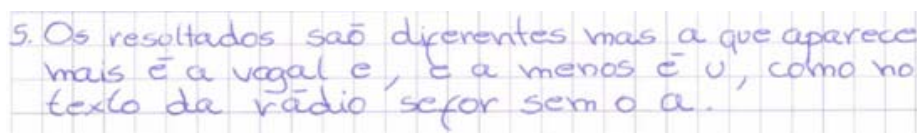 5. Os resoltados saō diferentes mas a que aparece
mais ē a vogal e, e a menos ē u, como no
texto da rādio sefor sem o a.